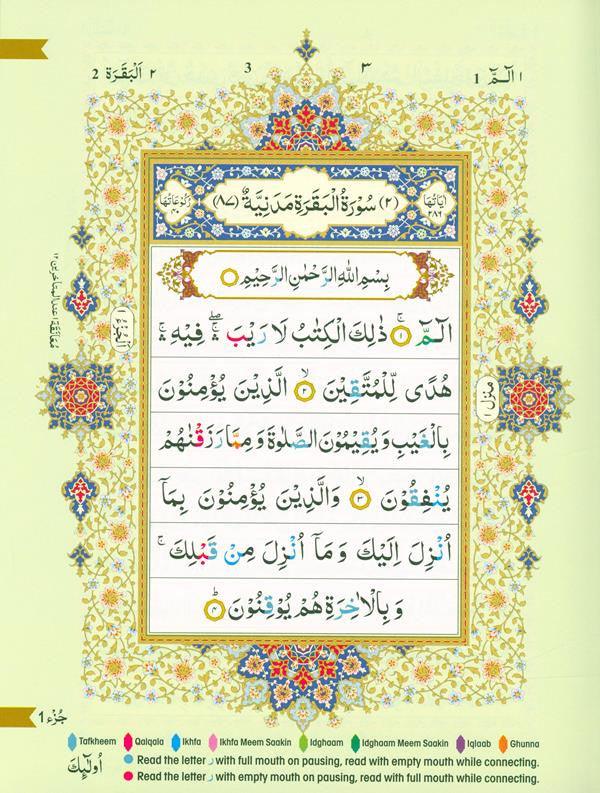 2 البقرة ٢
3 ٣
1 الٓمّٓ ١
اٰيَاتُهَا ٢٨٦
(٢) سُوْرَةُ الْبَقَرَةِ مَدَنِيَّةٌ (٨٧)
رُكُوْعَاتُهَا ٤٠
بِسْمِ اللهِ الرَّحْمٰنِ الرَّحِيْمِ
الٓمّٓ ۚ﴿١﴾ ذٰلِكَ الْكِتٰبُ لَا رَيْبَ ۛۖ فِيْهِ ۛۚ
هُدًى لِّلْمُتَّقِيْنَ ۙ﴿٢﴾ الَّذِيْنَ يُؤْمِنُوْنَ
بِالْغَيْبِ وَيُقِيْمُوْنَ الصَّلٰوةَ وَمِمَّا رَزَقْنٰهُمْ
يُنْفِقُوْنَ ۙ﴿٣﴾ وَالَّذِيْنَ يُؤْمِنُوْنَ بِمَآ
اُنْزِلَ اِلَيْكَ وَمَآ اُنْزِلَ مِنْ قَبْلِكَ ۚ
وَبِالْاٰخِرَةِ هُمْ يُوْقِنُوْنَ ؕ﴿٤﴾
اَلْجُزْءُ ١
منزل ١
1 جُزْء
Tafkheem Qalqala Ikhfa Ikhfa Meem Saakin Idghaam Idghaam Meem Saakin Iqlaab Ghunna
اُولٰٓئِكَ
Read the letter ر with full mouth on pausing, read with empty mouth while connecting.
Read the letter ر with empty mouth on pausing, read with full mouth while connecting.